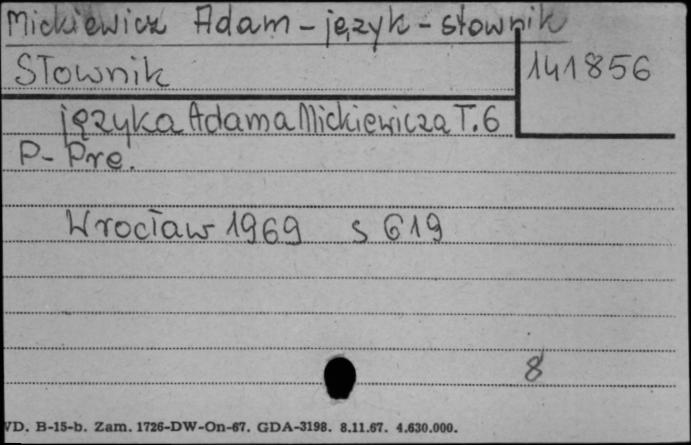 Mickiewicz Adam - język - słownik
Słownik
141856
języka Adama Mickiewicza T.6
P - Pre.
Wrocław 1969 s 619
8
VD. B-15-b. Zam. 1726-DW-On-67. GDA-3198. 8.11.67. 4.630.000.